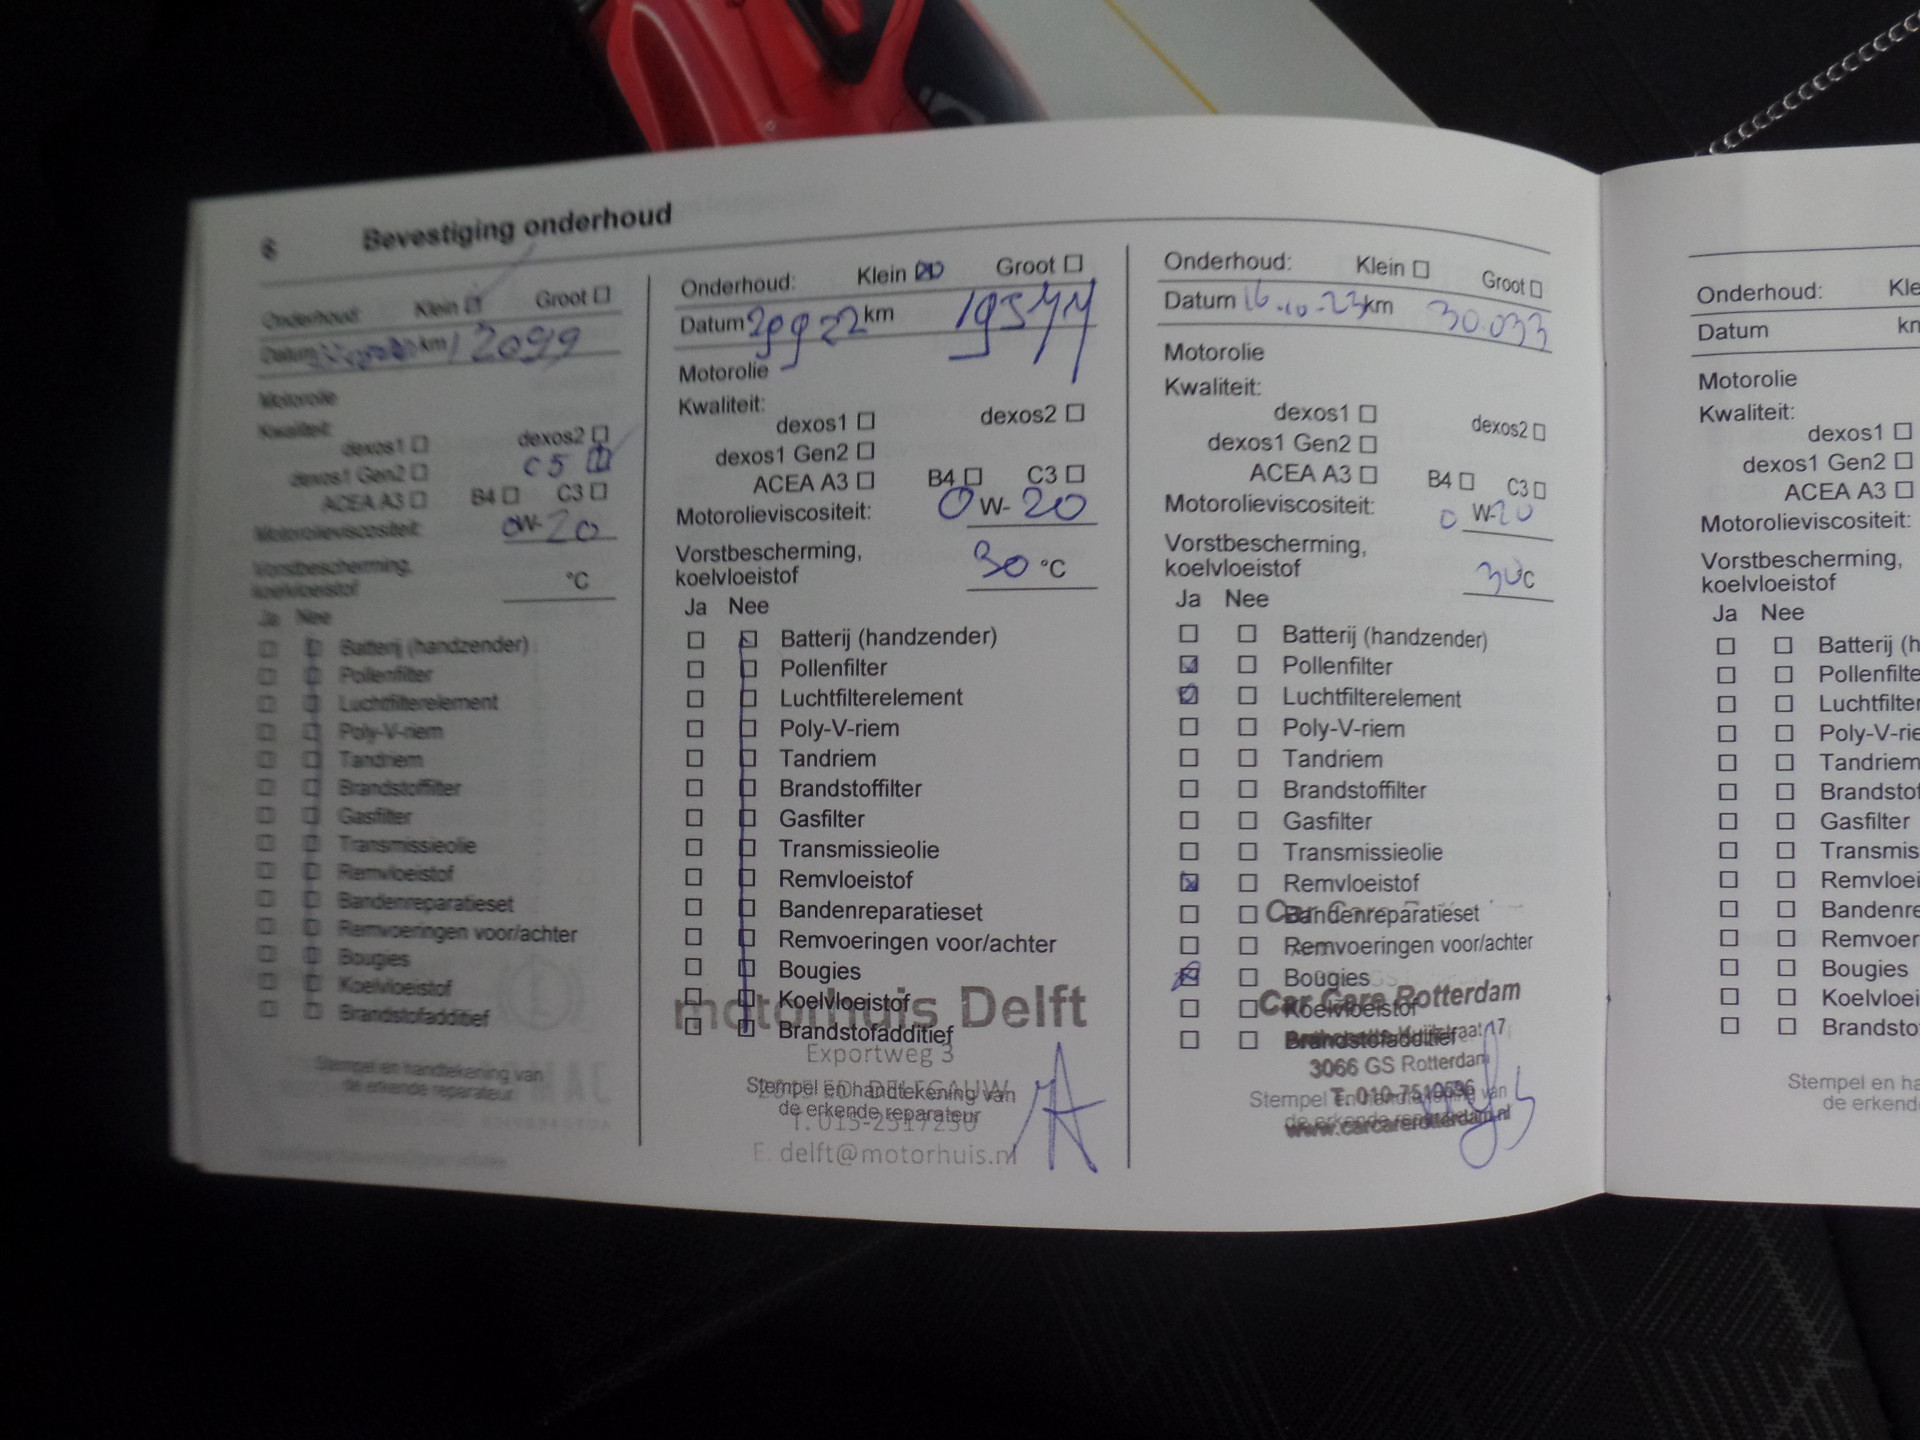 6 Bevestiging onderhoud
Onderhoud: Klein Groot
Datum km 12099
Motorolie
Kwaliteit:
dexos1 dexos2
dexos1 Gen2 C5
ACEA A3 B4 C3
Motorolieviscositeit: 0W-20
Vorstbescherming,
koelvloeistof °C
Ja Nee
Batterij (handzender)
Pollenfilter
Luchtfilterelement
Poly-V-riem
Tandriem
Brandstoffilter
Gasfilter
Transmissieolie
Remvloeistof
Bandenreparatieset
Remvoeringen voor/achter
Bougies
Koelvloeistof
Brandstofadditief
Stempel en handtekening van
de erkende reparateur
Onderhoud: Klein Groot
Datum 29 9 22 km 19544
Motorolie
Kwaliteit:
dexos1 dexos2
dexos1 Gen2
ACEA A3 B4 C3
Motorolieviscositeit: 0W-20
Vorstbescherming,
koelvloeistof 30 °C
Ja Nee
Batterij (handzender)
Pollenfilter
Luchtfilterelement
Poly-V-riem
Tandriem
Brandstoffilter
Gasfilter
Transmissieolie
Remvloeistof
Bandenreparatieset
Remvoeringen voor/achter
Bougies
Koelvloeistof
motorhuis Delft
Brandstofadditief
Exportweg 3
Stempel en handtekening van
de erkende reparateur
E. delft@motorhuis.nl
Onderhoud: Klein Groot
Datum 16-10-23 km 30.033
Motorolie
Kwaliteit:
dexos1 dexos2
dexos1 Gen2
ACEA A3 B4 C3
Motorolieviscositeit: 0W-20
Vorstbescherming,
koelvloeistof 30°C
Ja Nee
Batterij (handzender)
Pollenfilter
Luchtfilterelement
Poly-V-riem
Tandriem
Brandstoffilter
Gasfilter
Transmissieolie
Remvloeistof
Bandenreparatieset
Remvoeringen voor/achter
Bougies
Car Care Rotterdam
Koelvloeistof
Brandstofadditief
3066 GS Rotterdam
Stempel en handtekening van
T. 010-7510696
de erkende reparateur
www.carcarerotterdam.nl
Onderhoud: Kle
Datum km
Motorolie
Kwaliteit:
dexos1
dexos1 Gen2
ACEA A3
Motorolieviscositeit:
Vorstbescherming,
koelvloeistof
Ja Nee
Batterij (h
Pollenfilte
Luchtfilter
Poly-V-rie
Tandriem
Brandstof
Gasfilter
Transmis
Remvloei
Bandenre
Remvoer
Bougies
Koelvloei
Brandsto
Stempel en ha
de erkend